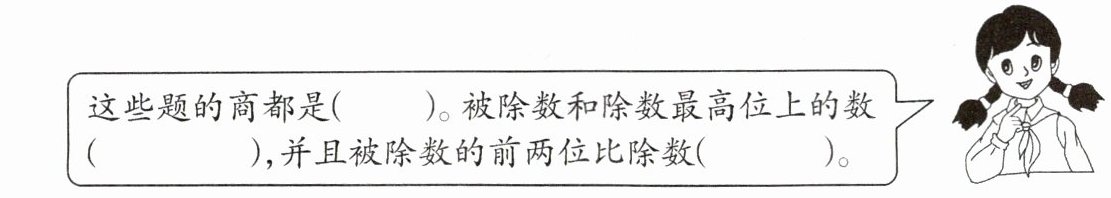 这些题的商都是(　　)。被除数和除数最高位上的数
(　　　　),并且被除数的前两位比除数(　　　)。